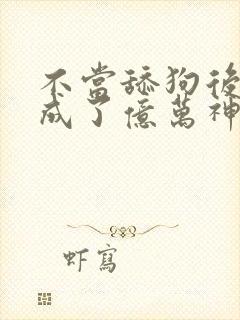 不當舔狗後
成了億萬神
虾寫